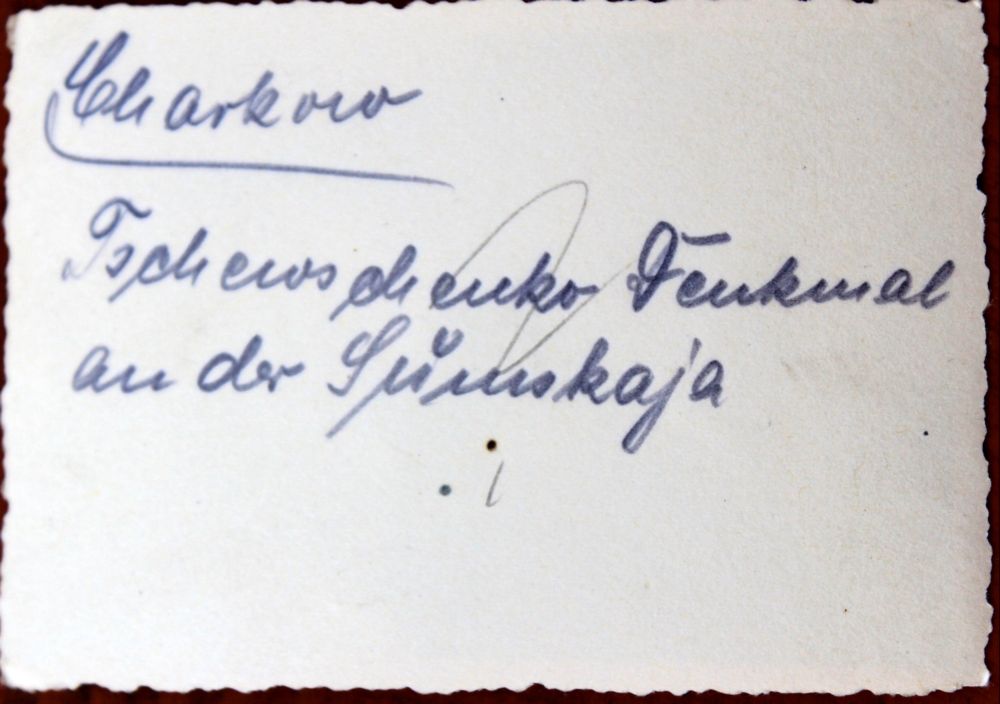 Charkow
Tschewschenko Denkmal
an der Sumskaja